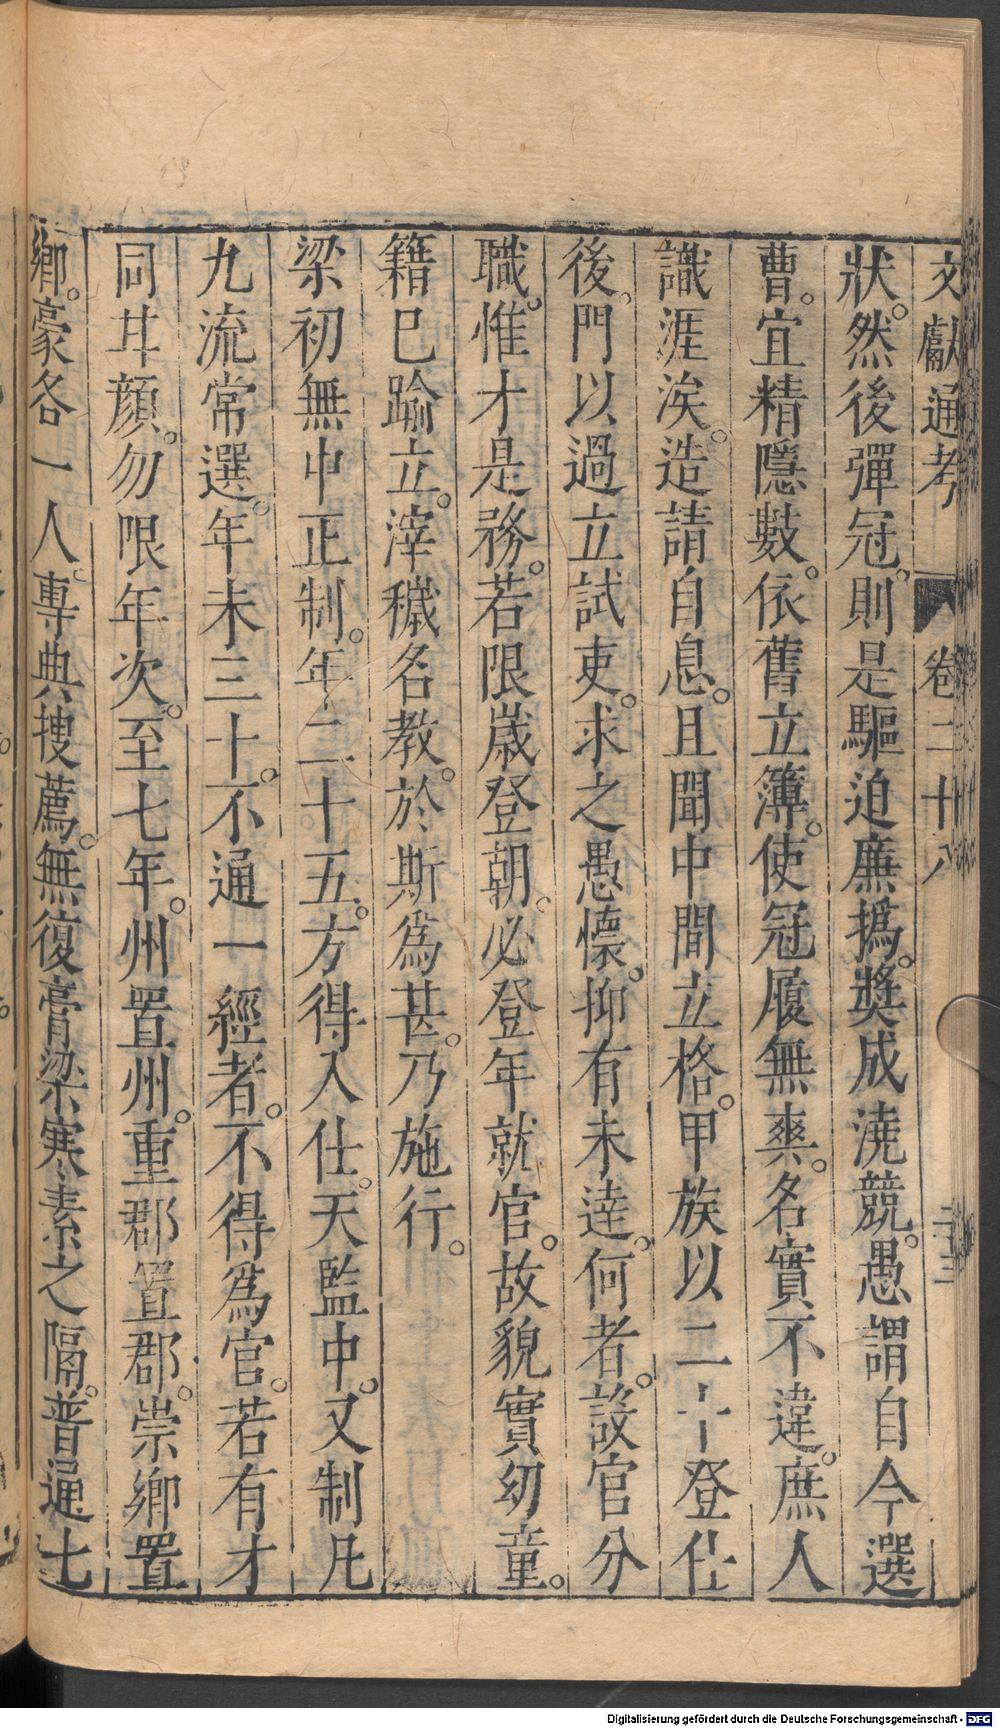 文獻通考 卷二十八 二十三
狀。然後彈冠。則是驅迫廉撝。奬成澆競。愚謂自今選
曹。宜精隱數。依舊立簿。使冠履無爽。名實不違。庶人
識涯涘。造請自息。且聞中間立格。甲族以二十登仕
後。門以過立試吏。求之愚懷。抑有未達。何者。設官分
職。惟才是務。若限歲登朝。必登年就官。故貌實幼童。
籍已踰立。滓穢名教。於斯爲甚。乃施行。
梁初無中正制。年二十五。方得入仕。天監中。又制凡
九流常選。年未三十。不通一經者。不得爲官。若有才
同甘顏。勿限年次。至七年。州置州。重郡置郡。崇鄉置
鄉。豪各一人。專典搜薦。無復膏粱寒素之隔。普通七
Digitalisierung gefördert durch die Deutsche Forschungsgemeinschaft - DFG